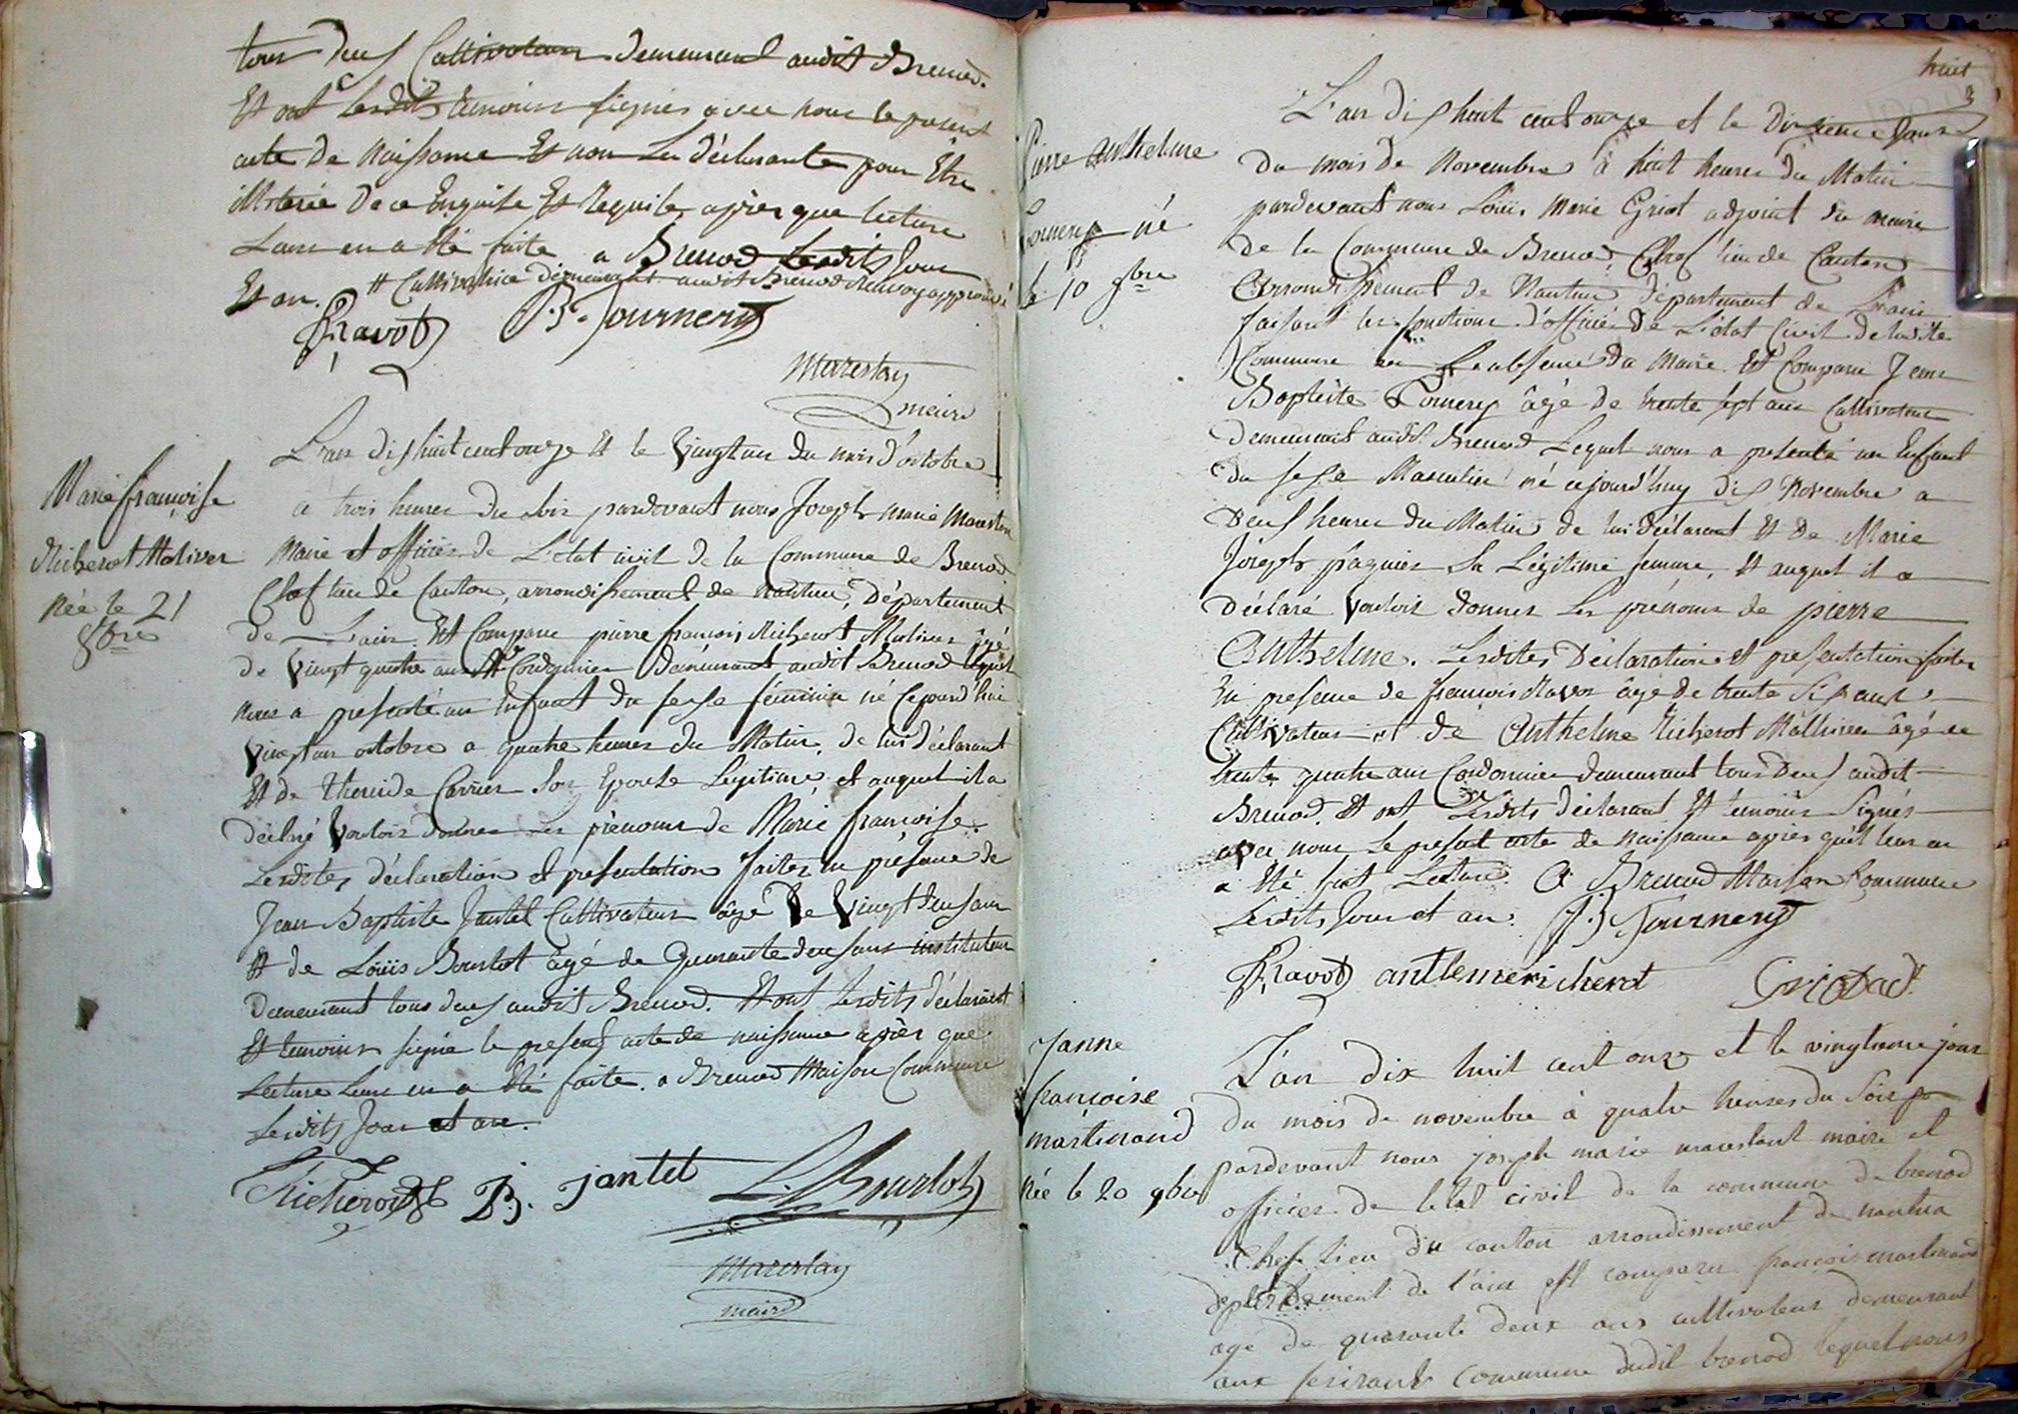 tous deux Cultivateurs demeurant audit Brenod.
Et ont lesdits temoins signés avec nous le présent
acte de Naissance Et non la déclarante pour Etre
illiterée de ce Enquise Et Requise, après que lecture
Leur en a été faite a Brenod Lesdits Jour
Et an. # Cultivatrice demeurant audit Brenod Renvoy approuvé
Ravot J.B. Tournery
Marestay
maire
Marie françoise
Richerot Moliner
Née le 21
8bre
L'an dix huit cent onze Et le Vingt un du mois d'octobre
a trois heures du soir pardevant nous Joseph Marie Marestan
Maire et officier de L'état civil de la Commune de Brenod
Chef lieu de Canton, arrondissement de Nantua, Département
de Lain Est Comparu pierre françois Richerot Moliner âgé
de Vingt quatre ans Cordonnier Demeurant audit Brenod lequel
nous a presenté un Enfant du sexe féminin né Cejourd'hui
Vingt un octobre a quatre heures du Matin, de lui déclarant
Et de Carrier Son Epouse Legitime, et auquel il a
déclaré Vouloir donner les prénoms de Marie françoise.
Lesdites déclaration et presentation faites en présence de
Jean Baptiste Jantet Cultivateur âgé de Vingt deux ans
Et de Loüis Bourlot âgé de Quarante deux ans instituteur
Demeurant tous deux audit Brenod. Et ont lesdits déclarant
Et temoins signé le present acte de naissance après que
Lecture Leur en a été faite. a Brenod Maison Commune
Lesdits Jour et an.
Richerot J.B. jantet L. Bourlot
Marestay
maire
huit
Pierre Anthelme
Tournery né
le 10 9bre
L'an dix huit cent onze et le Dixieme Jour
du mois de Novembre à huit heures du Matin
pardevant nous Loüis Marie Griot adjoint du maire
de la Commune de Brenod, Chef lieu de Canton
Arrondissement de Nantua département de Lain
faisant les fonctions d'officier de L'état Civil de ladite
Commune en Labsence du Maire Est Comparu Jean
Baptiste Tournery âgé de trente sept ans Cultivateur
demeurant audit Brenod Lequel nous a presenté un Enfant
du sexe Masculin né cejourd'huy dix Novembre a
Deux heures du Matin de lui déclarant Et De Marie
Joseph paquier Sa Légitime femme, Et auquel il a
Déclaré Vouloir donner les prénoms de pierre
Anthelme. Lesdites Déclaration et presentation faites
En presence de françois Ravot âgé de trente six ans
Cultivateur et de Anthelme Richerot Mollinier âgé de
trente quatre ans Cordonnier demeurant tous Deux audit
Brenod. Et ont Lesdits déclarant Et temoins Signés
avec nous Le present acte de Naissance après qu'il leur en
a été fait Lecture. A Brenod Maison Commune
Lesdits Jour et an. J.B Tournery
Ravot antlemericherot Griot adt
Janne
francoise
martinand
Née le 20 9bre
L'an dix huit cent onze et le vingtieme jour
du mois de novembre à quatre heures du Soir
pardevant nous joseph marie marestant maire et
officier de letat civil de la commune de brenod
chef lieu du canton arrondissement de nantua
departement de l'ain est comparu françois martinand
age de quarante deux ans cultivateur demeurant
aux commune dudit brenod lequel nous